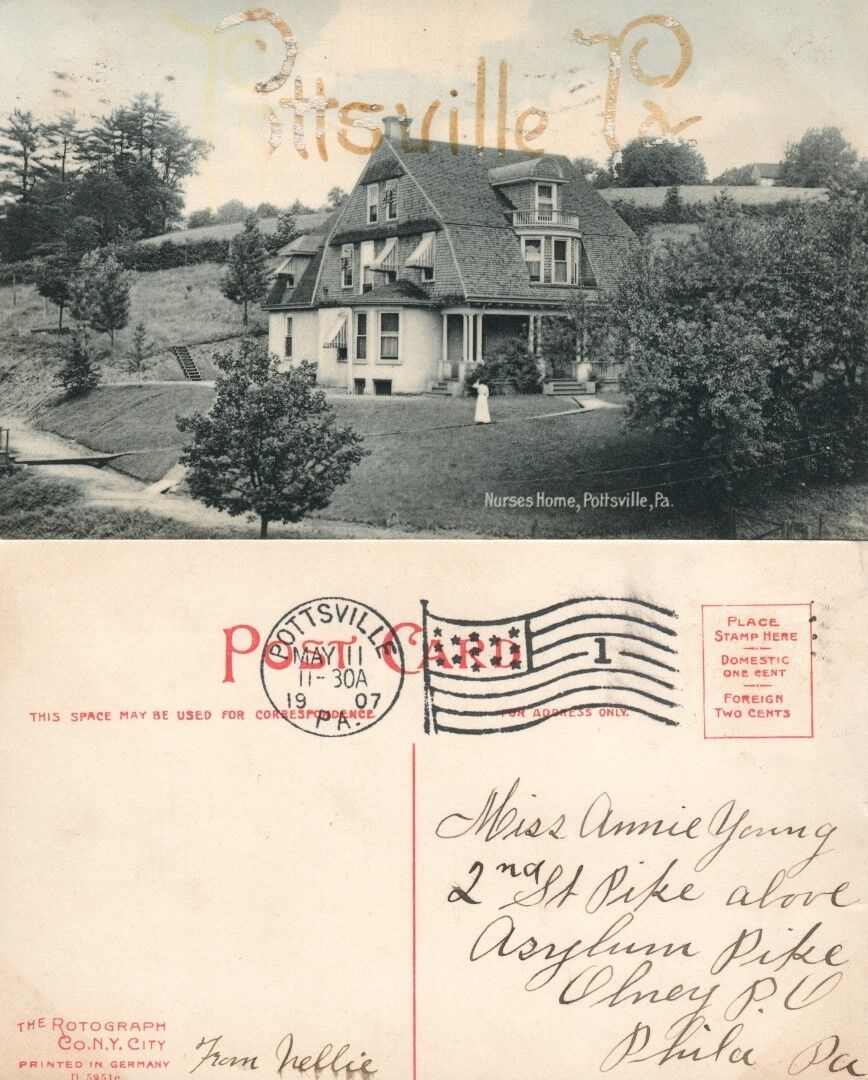 Pottsville Pa
Nurses Home, Pottsville, Pa.
POST CARD
POTTSVILLE
MAY 11
11-30A
19 07
PA.
1
PLACE
STAMP HERE
DOMESTIC
ONE CENT
FOREIGN
TWO CENTS
THIS SPACE MAY BE USED FOR CORRESPONDENCE
FOR ADDRESS ONLY.
Miss Annie Young
2nd St Pike above
Asylum Pike
Olney P.O
Phila Pa
THE ROTOGRAPH
CO. N.Y. CITY
PRINTED IN GERMANY
D 5951c
From Nellie